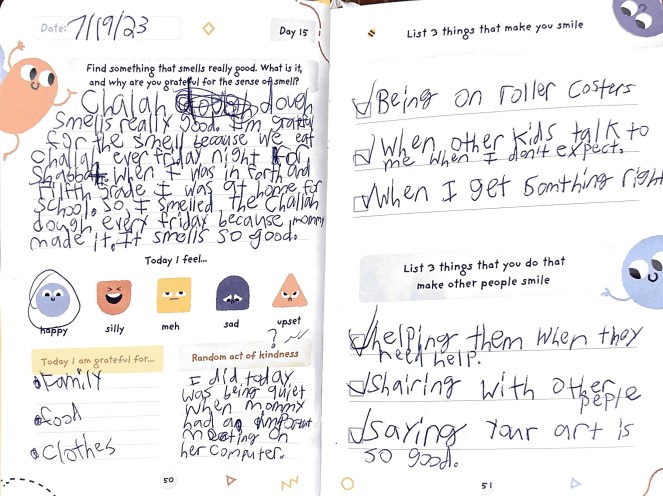 Date: 7/19/23
Day 15
Find something that smells really good. What is it,
and why are you grateful for the sense of smell?
Challah dough
smells really good. I'm grateful
for the smell because we eat
challah ever friday night for
Shabbat. When I was in forth and
fifth grade I was at home for
school. So I smelled the Challah
dough every friday because mommy
made it. It smells so good.
Today I feel...
happy
silly
meh
sad
upset
?
Today I am grateful for...
Family
food
Clothes
Random act of kindness
I did today
was being quiet
when mommy
had an important
meeting on
her computer.
50
List 3 things that make you smile
Being on roller costers
When other kids talk to
me when I don't expect.
When I get Somthing right
List 3 things that you do that
make other people smile
helping them when they
need help.
Shairing with other
peple
saying your art is
so good.
51